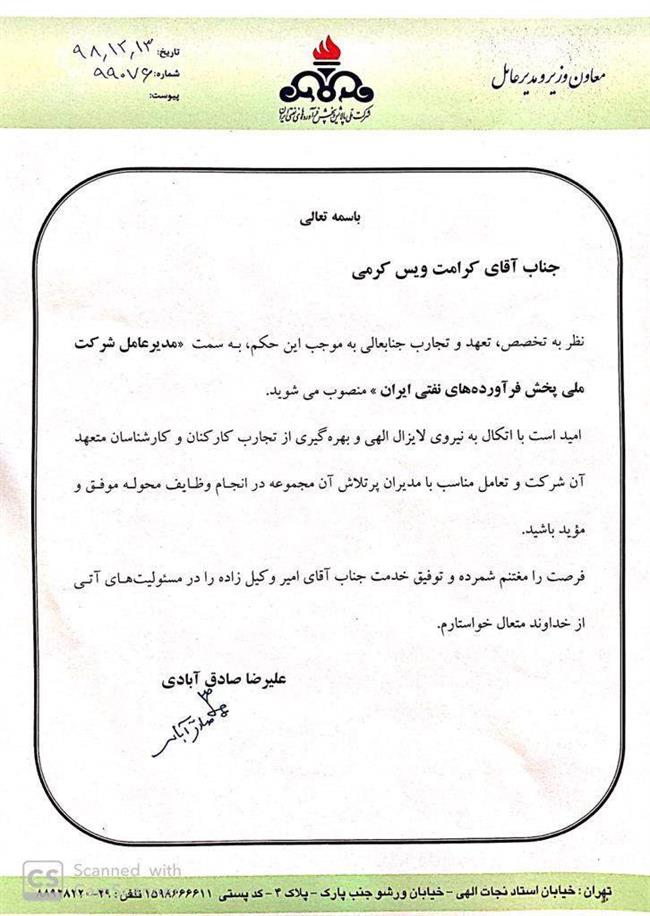 معاون وزیر و مدیرعامل
شرکت ملی پالایش و پخش فرآورده‌های نفتی ایران
تاریخ: ۹۸,۱۲,۱۳
شماره: ۹۹۰۷۶
پیوست:
باسمه تعالی
جناب آقای کرامت ویس کرمی
نظر به تخصص، تعهد و تجارب جنابعالی به موجب این حکم، به سمت «مدیرعامل شرکت
ملی پخش فرآورده‌های نفتی ایران» منصوب می شوید.
امید است با اتکال به نیروی لایزال الهی و بهره‌گیری از تجارب کارکنان و کارشناسان متعهد
آن شرکت و تعامل مناسب با مدیران پرتلاش آن مجموعه در انجام وظایف محوله موفق و
مؤید باشید.
فرصت را مغتنم شمرده و توفیق خدمت جناب آقای امیر وکیل زاده را در مسئولیت‌های آتی
از خداوند متعال خواستارم.
علیرضا صادق آبادی
CS Scanned with
تهران: خیابان استاد نجات الهی - خیابان ورشو جنب پارک - پلاک ۴ - کد پستی ۱۵۹۸۶۶۶۶۱۱ تلفن: ۲۹-۸۸۹۲۸۱۲۰